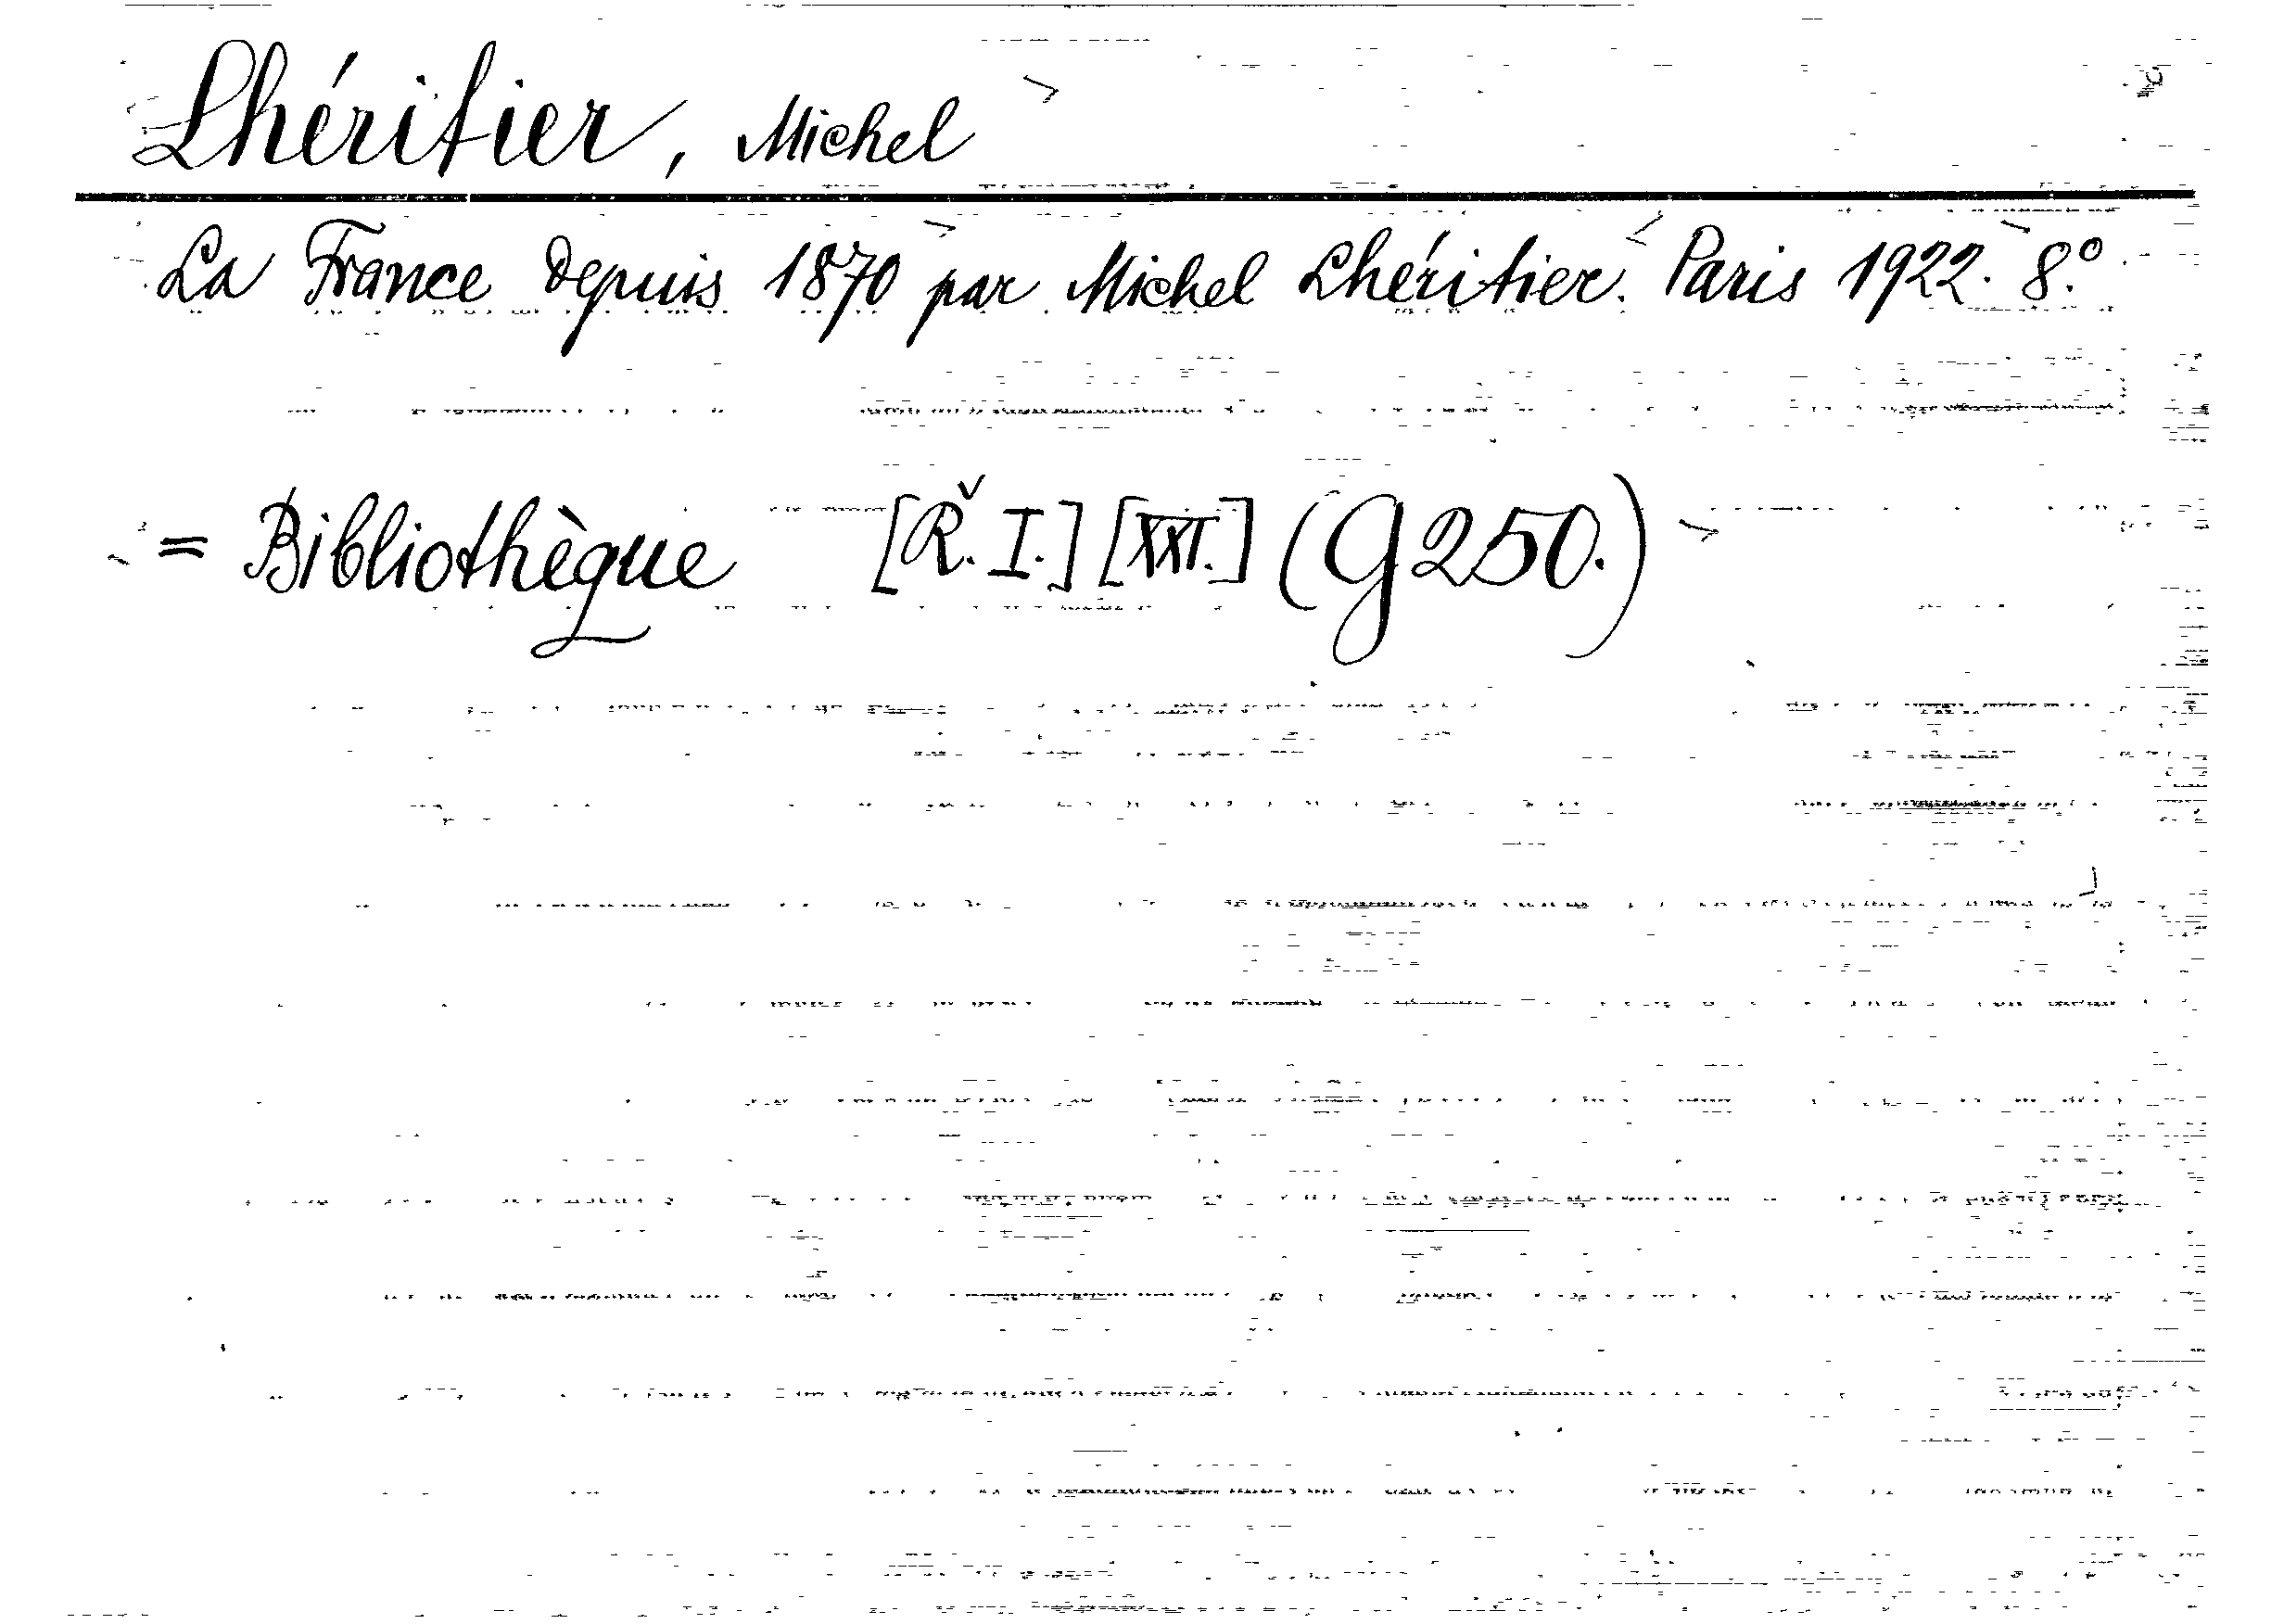 Lhéritier, Michel
La France depuis 1870 par Michel Lhéritier. Paris 1922. 8.º
= Bibliothèque [Ř. I.] [XXI.] (G 250.)